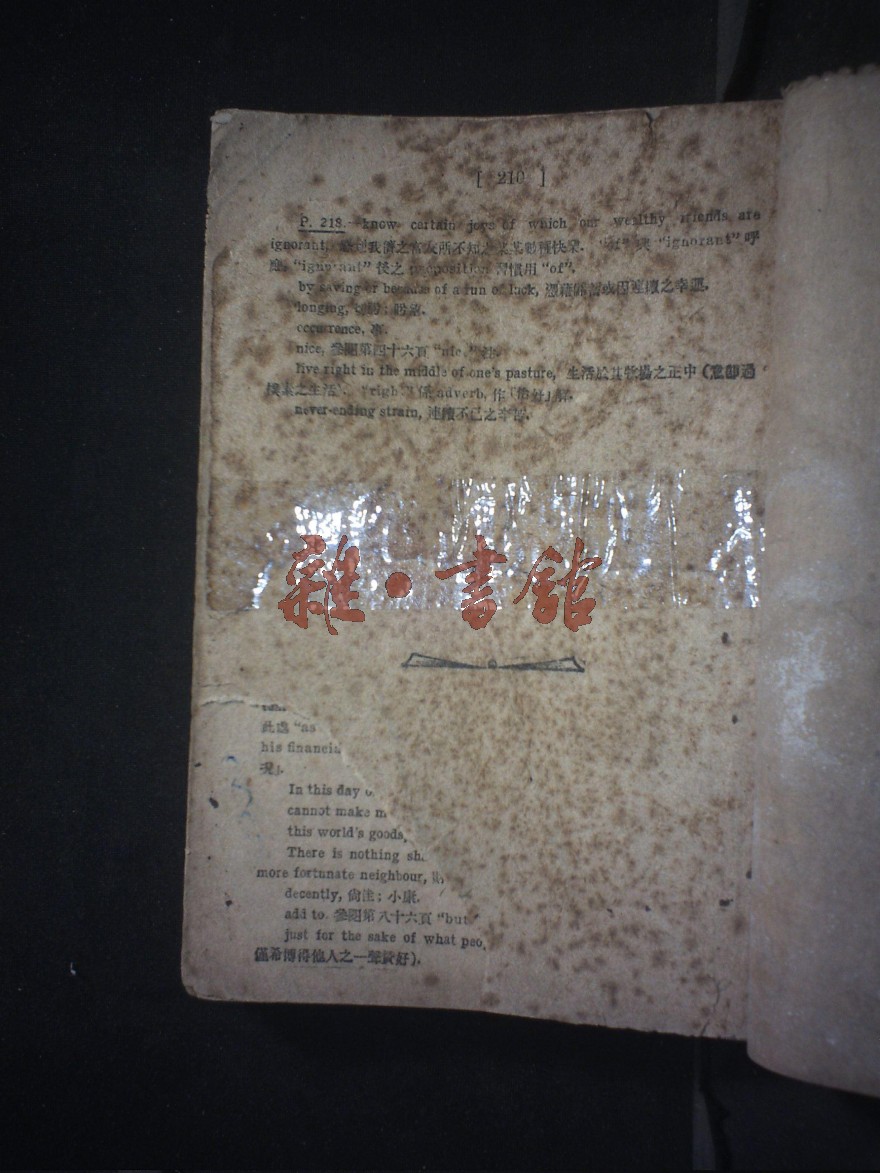 [ 210 ]
P. 218.—know certain joys of which our wealthy friends are
ignorant, 我儕之富友所不知之某某數種快樂. "of" 與 "ignorant" 呼
應, "ignorant" 後之 preposition 習慣用 "of".
by saving or because of a run of luck, 憑藉儲蓄或因連續之幸運.
longing, 盼望.
occurrence, 事.
nice, 參閱第四十六頁
live right in the middle of one's pasture, 生活於其牧場之正中 (意即過
樸素之生活). "right" 係 adverb, 作「恰好」解.
never-ending strain, 連續不已之
雜·書館
此處 "as
his financia
況」.
In this day
cannot make m
this world's goods,
There is nothing sh
more fortunate neighbour,
decently, 尙佳; 小康.
add to, 參閱第八十六頁 "but"
just for the sake of what peo
僅希博得他人之一聲贊好).